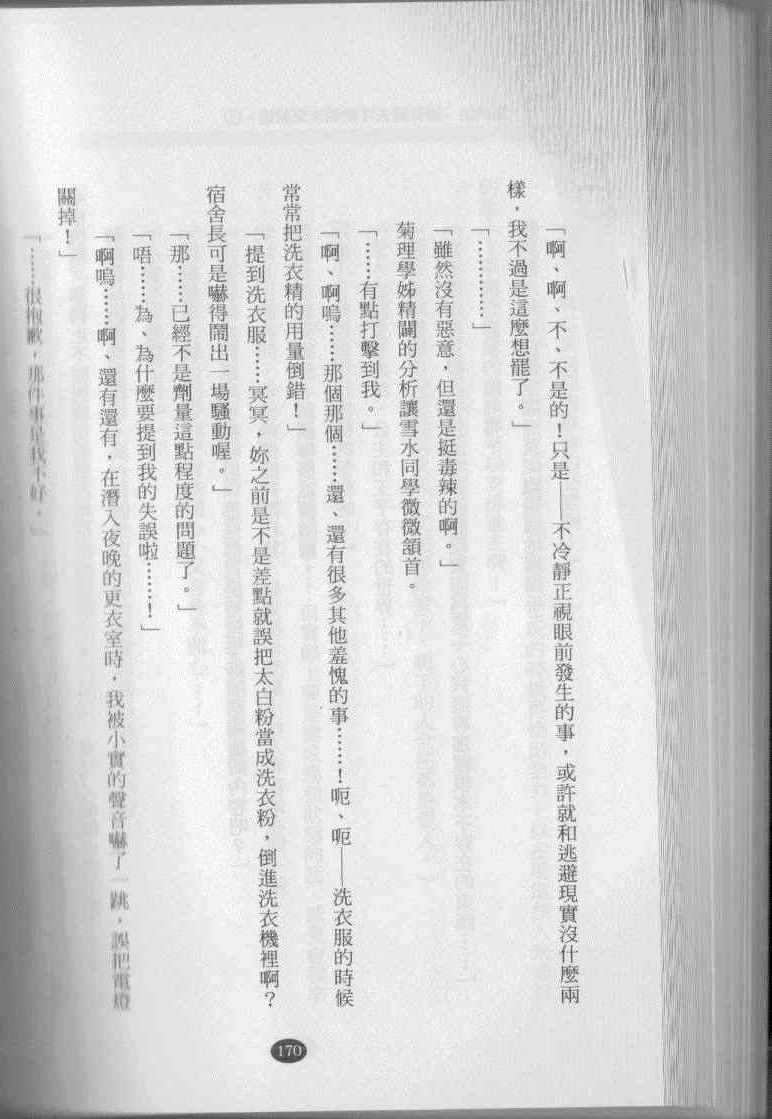 「啊、啊、不、不是的！只是——不冷靜正視眼前發生的事，或許就和逃避現實沒什麼兩
樣，我不過是這麼想罷了。」
「……………」
「雖然沒有惡意，但還是挺毒辣的啊。」
菊理學姊精闢的分析讓雪水同學微微頷首。
「……有點打擊到我。」
「啊、啊嗚……那個那個……還、還有很多其他羞愧的事……！呃、呃——洗衣服的時候
常常把洗衣精的用量倒錯！」
「提到洗衣服……冥冥，妳之前是不是差點就誤把太白粉當成洗衣粉，倒進洗衣機裡啊？
宿舍長可是嚇得鬧出一場騷動喔。」
「那……已經不是劑量這點程度的問題了。」
「唔……為、為什麼要提到我的失誤啦……！」
「啊嗚……啊、還有還有，在潛入夜晚的更衣室時，我被小實的聲音嚇了一跳，誤把電燈
關掉！」
「……很抱歉，那件事是我不好。」
170